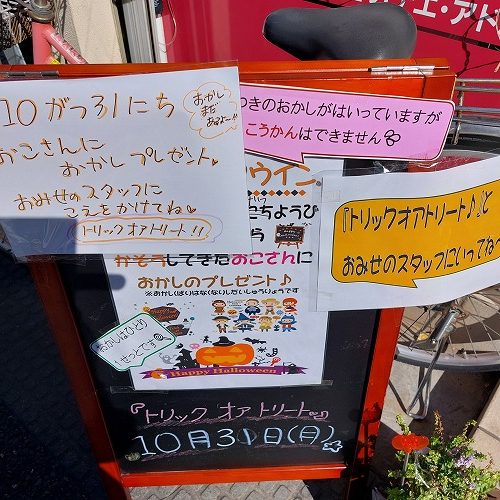 10がつ31にち
おこさんに
おかしプレゼント
おみせのスタッフに
こえをかけてね
トリックオアトリート!!
おかし
まだ
あるよー!!
つきのおかしがはいっていますが
こうかんはできません
ウィン
にちようび
ら
かそうしてきたおこさんに
おかしのプレゼント♪
※おかし(ぱい)はなくなりしだいしゅうりょうです
Happy Halloween
おかしはひとり
1せっとです
『トリックオアトリート♪』と
おみせのスタッフにいってね
『トリック オア トリート♪』
10月31日(月)